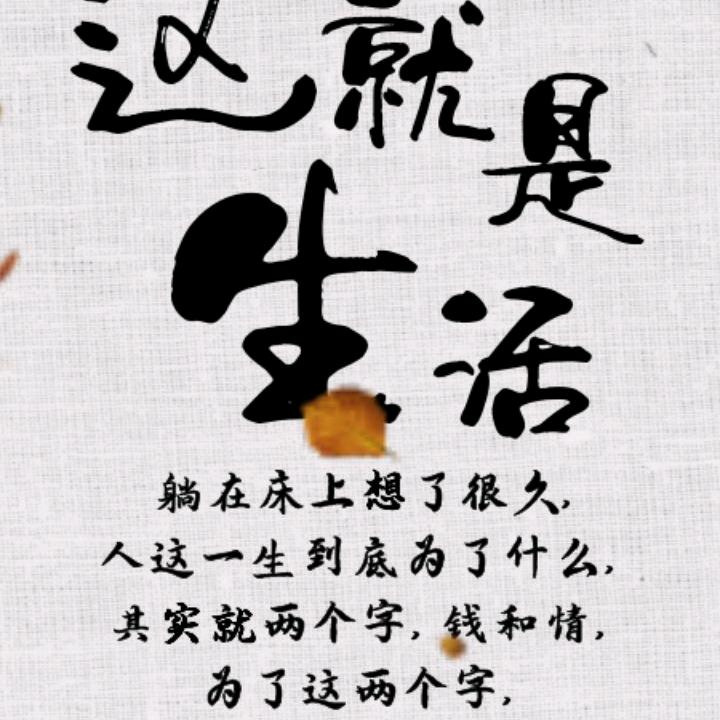 这就是
生活
躺在床上想了很久,
人这一生到底为了什么,
其实就两个字,钱和情,
为了这两个字,